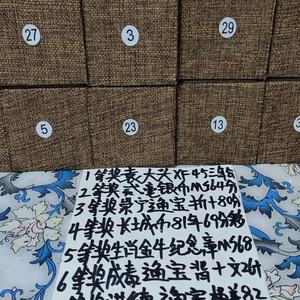 27 3 29
5 23 13
1等奖袁大头XF45三年
2等奖 银币MS64分
3等奖崇宁通宝折十80分
4等奖长城币81年69分
5等奖生肖金牛纪念章MS68
6等奖咸泰通宝背十文
通宝